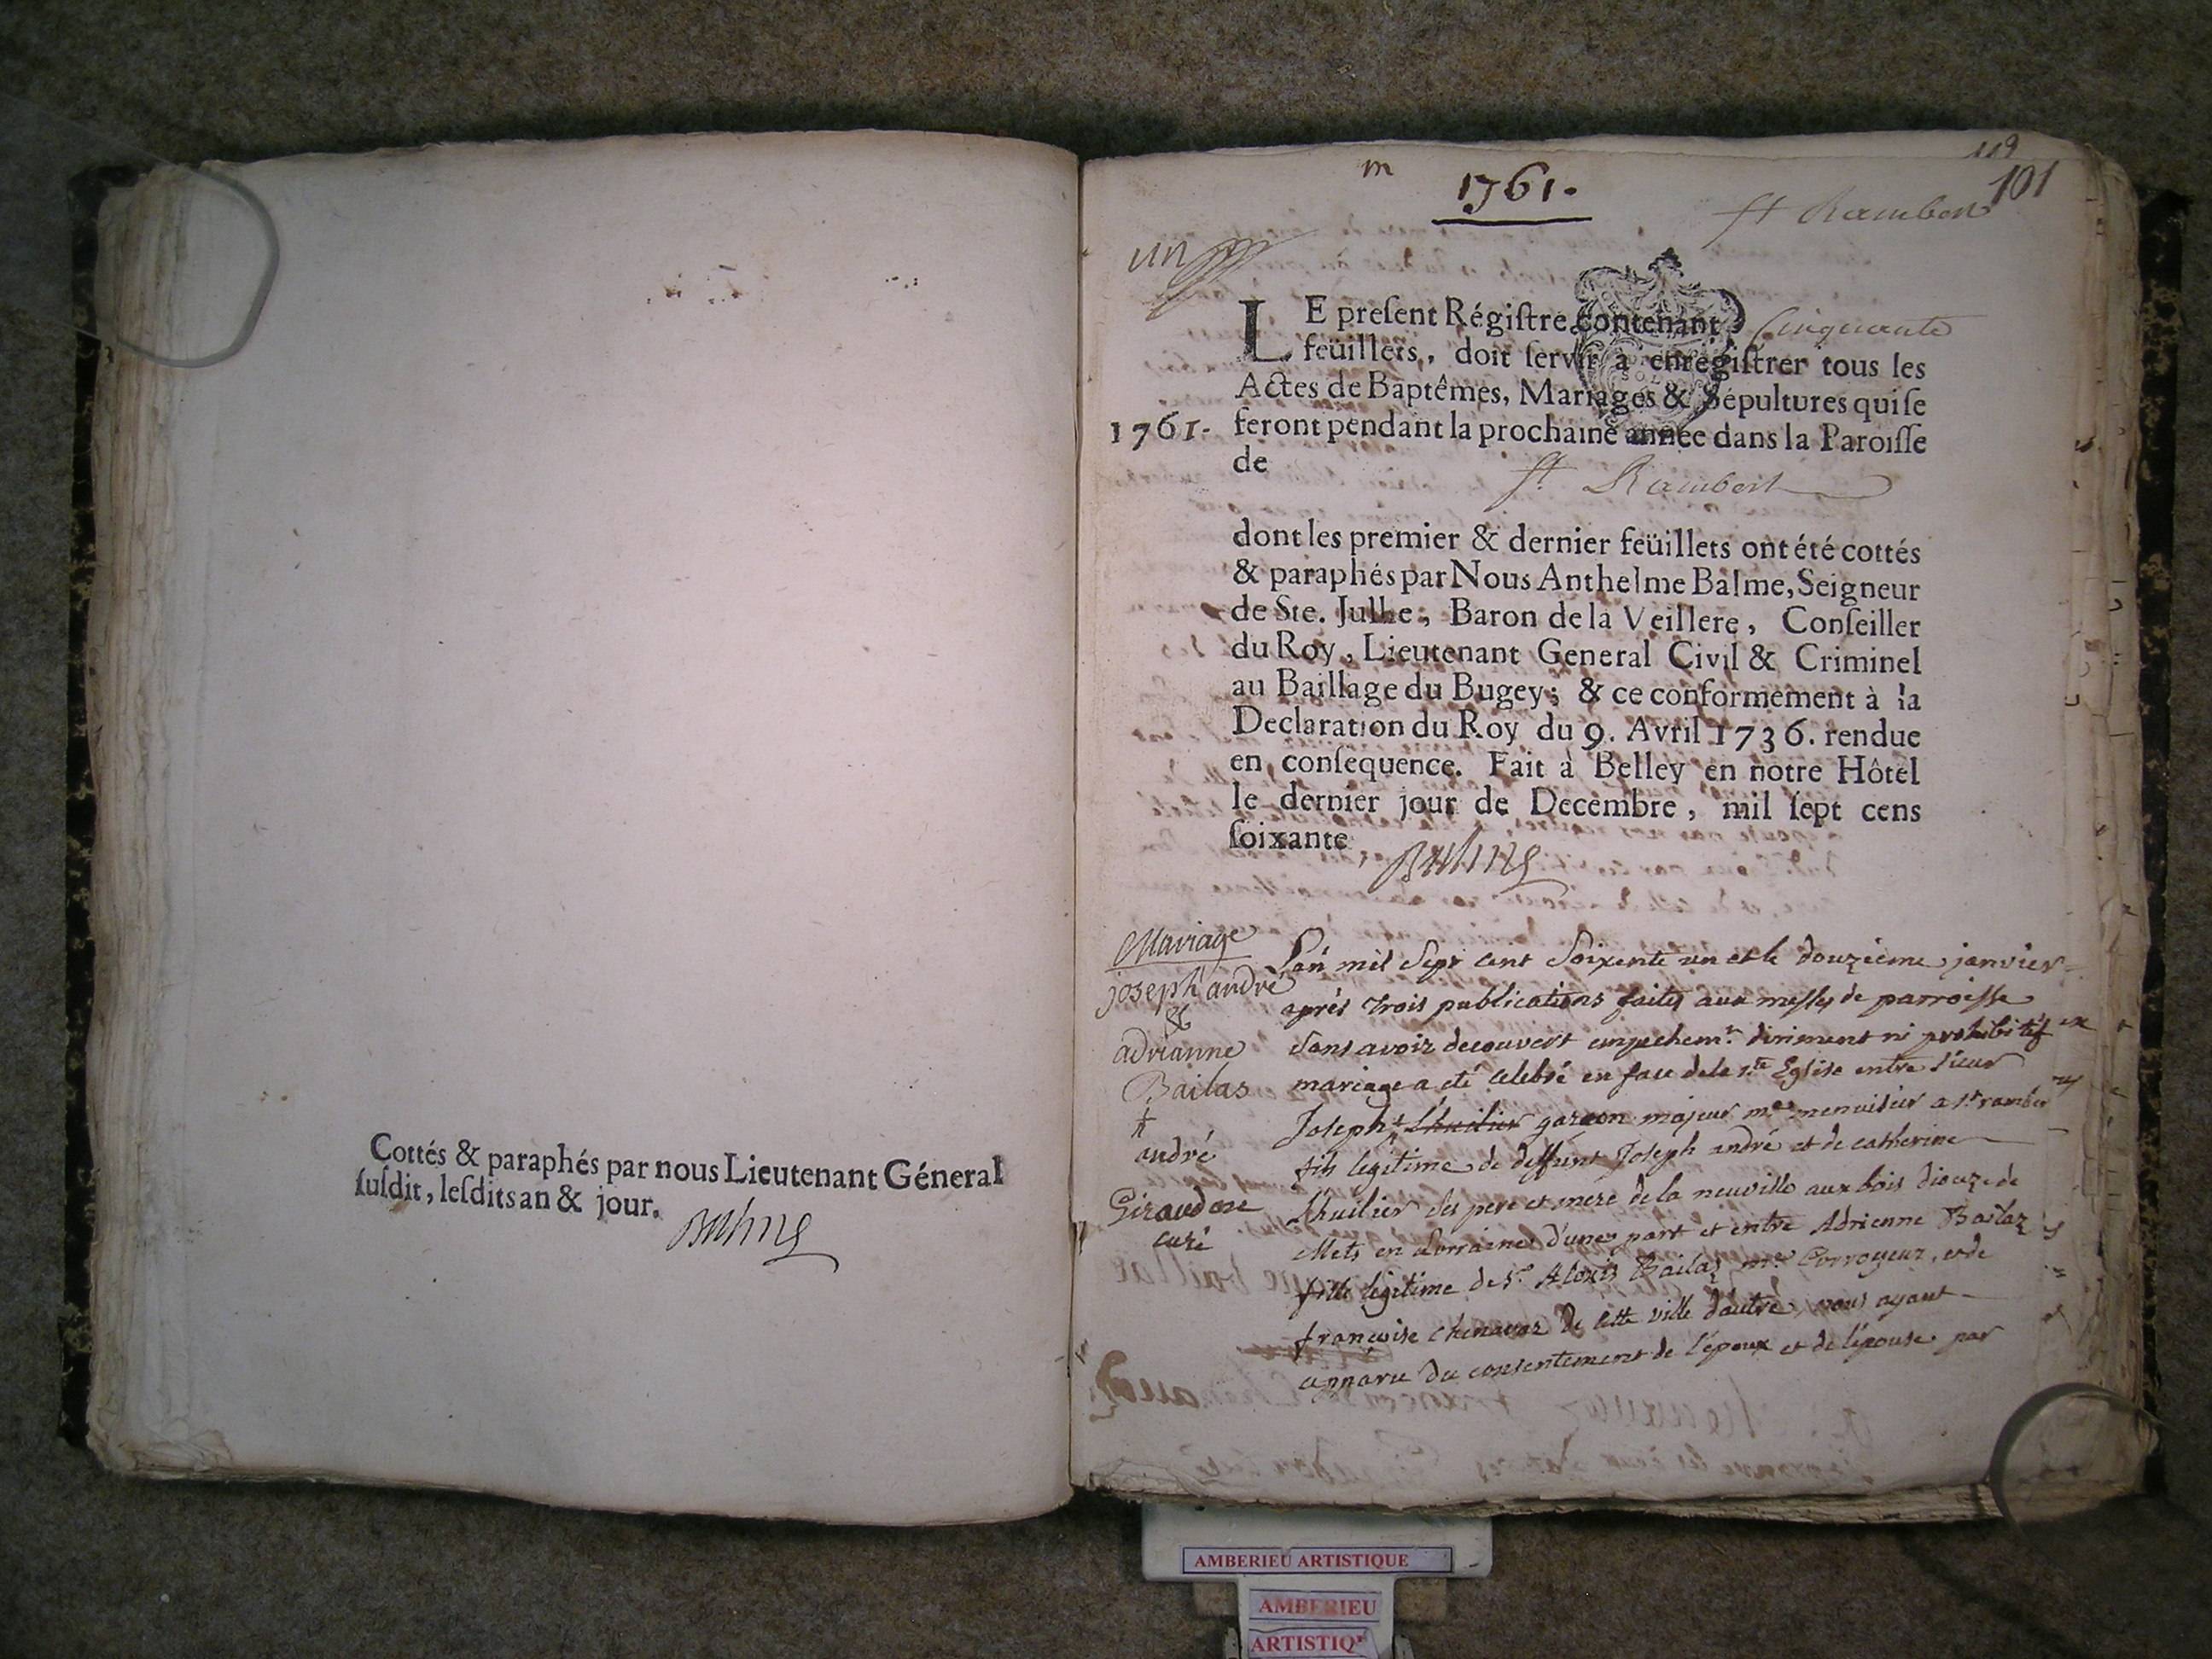 Cottés & paraphés par nous Lieutenant Géneral
ſuſdit, leſdits an & jour.
Balme
119
101
m
1761.
St Rambert
un
LE preſent Régiſtre contenant Cinquante
feüillets, doit ſervir à enregiſtrer tous les
Actes de Baptêmes, Mariages & Sépultures qui ſe
1761. feront pendant la prochaine année dans la Paroiſſe
de
St. Rambert
dont les premier & dernier feüillets ont été cottés
& paraphés par Nous Anthelme Balme, Seigneur
de Ste. Julhe, Baron de la Veillere, Conſeiller
du Roy, Lieutenant General Civil & Criminel
au Baillage du Bugey; & ce conformement à la
Declaration du Roy du 9. Avril 1736. rendue
en conſequence. Fait à Belley en notre Hôtel
le dernier jour de Decembre, mil ſept cens
ſoixante
Balme
Mariage
joseph andré
&
adrianne
Bailas
+
andré
Giraud
curé
L'an mil Sept cent Soixente un et le douzieme janvier
après trois publications faites aux messes de parroisse
Sans avoir decouvert empechemt. diriment ni prohibitif
mariage a été celebré en face de la ste Eglise entre sieur
Joseph + L'huilier garcon majeur me. menuisier a st rambert
fils legitime de deffunt Joseph andré et de catherine
L'huilier ses pere et mere de la neuville aux bois diouze de
Mets en Lorraine d'une part et entre Adrienne Bailaz
fille legitime de Sr. Alexis Bailaz me. Corroyeur, et de
françoise chenavaz de cette ville d'autre, nous ayant
apparu du consentement de l'époux et de l'épouse par
AMBERIEU ARTISTIQUE
AMBERIEU
ARTISTIQ